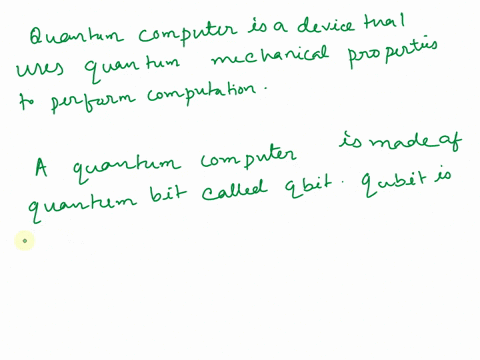 Quantum computer is a device that
uses quantum mechanical properties
to perform computation.
A quantum computer is made of
quantum bit called qbit. Qubit is